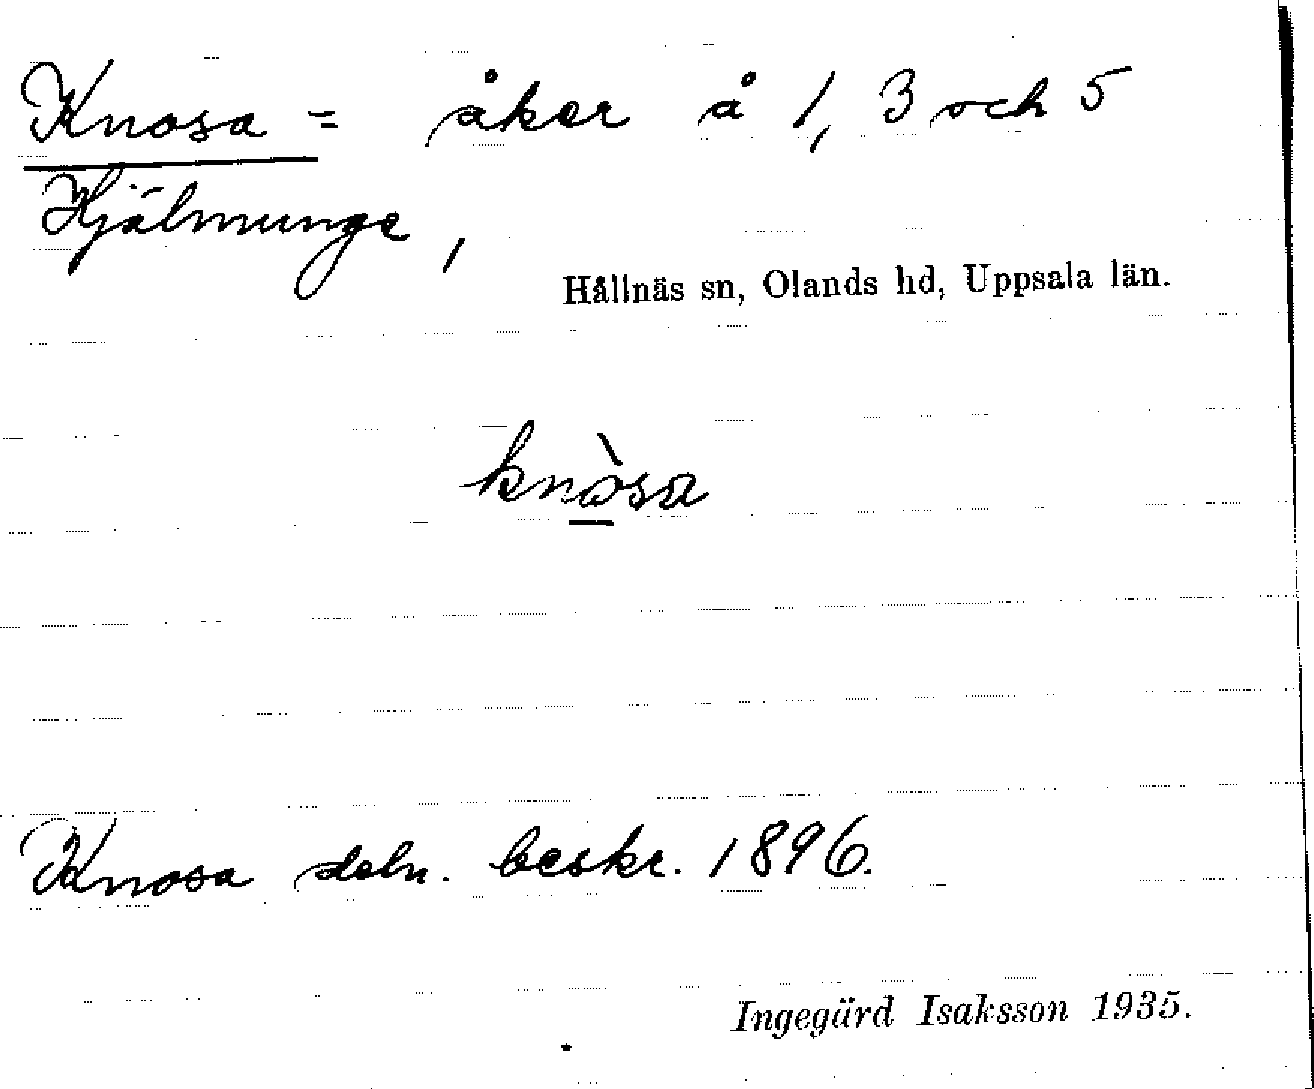 Knosa = åker å 1, 3 och 5
Hjälmunge,
Hållnäs sn, Olands hd, Uppsala län.
knò̱sa
Knosa deln. beskr. 1896.
Ingegärd Isaksson 1935.